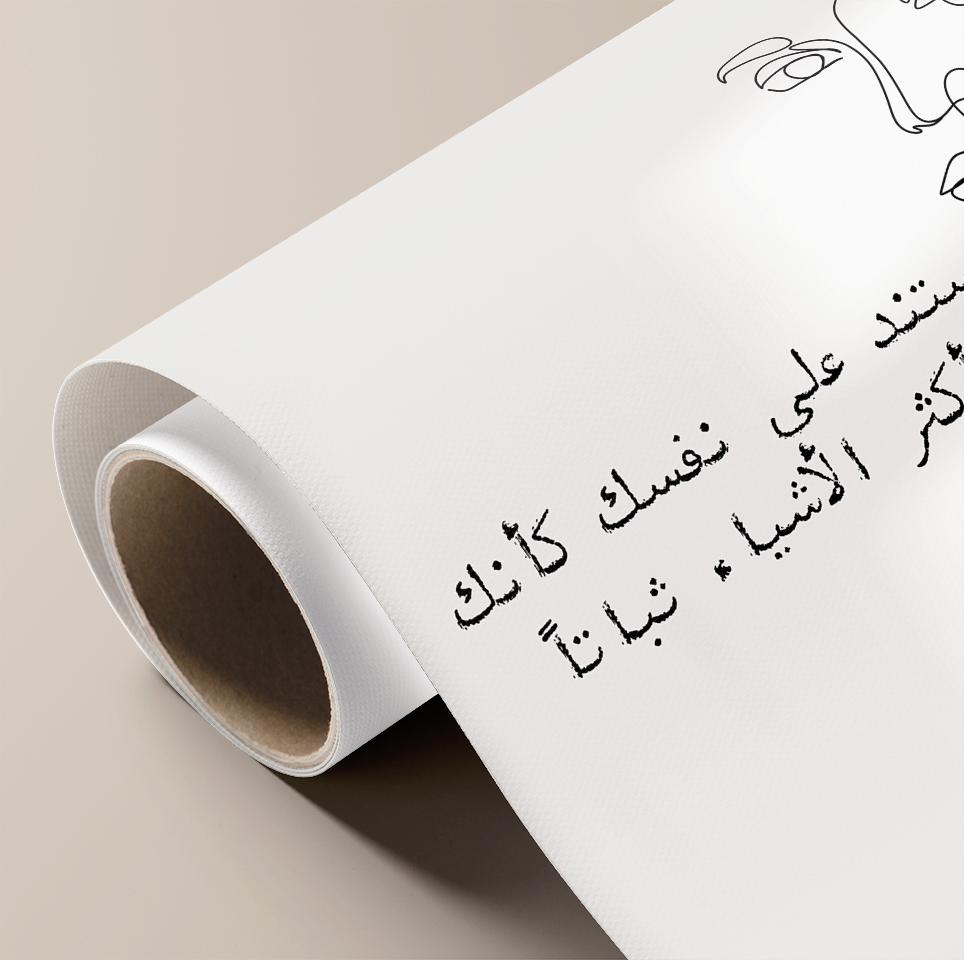 ستند على نفسك كأنك
أكثر الأشياء ثباتاً